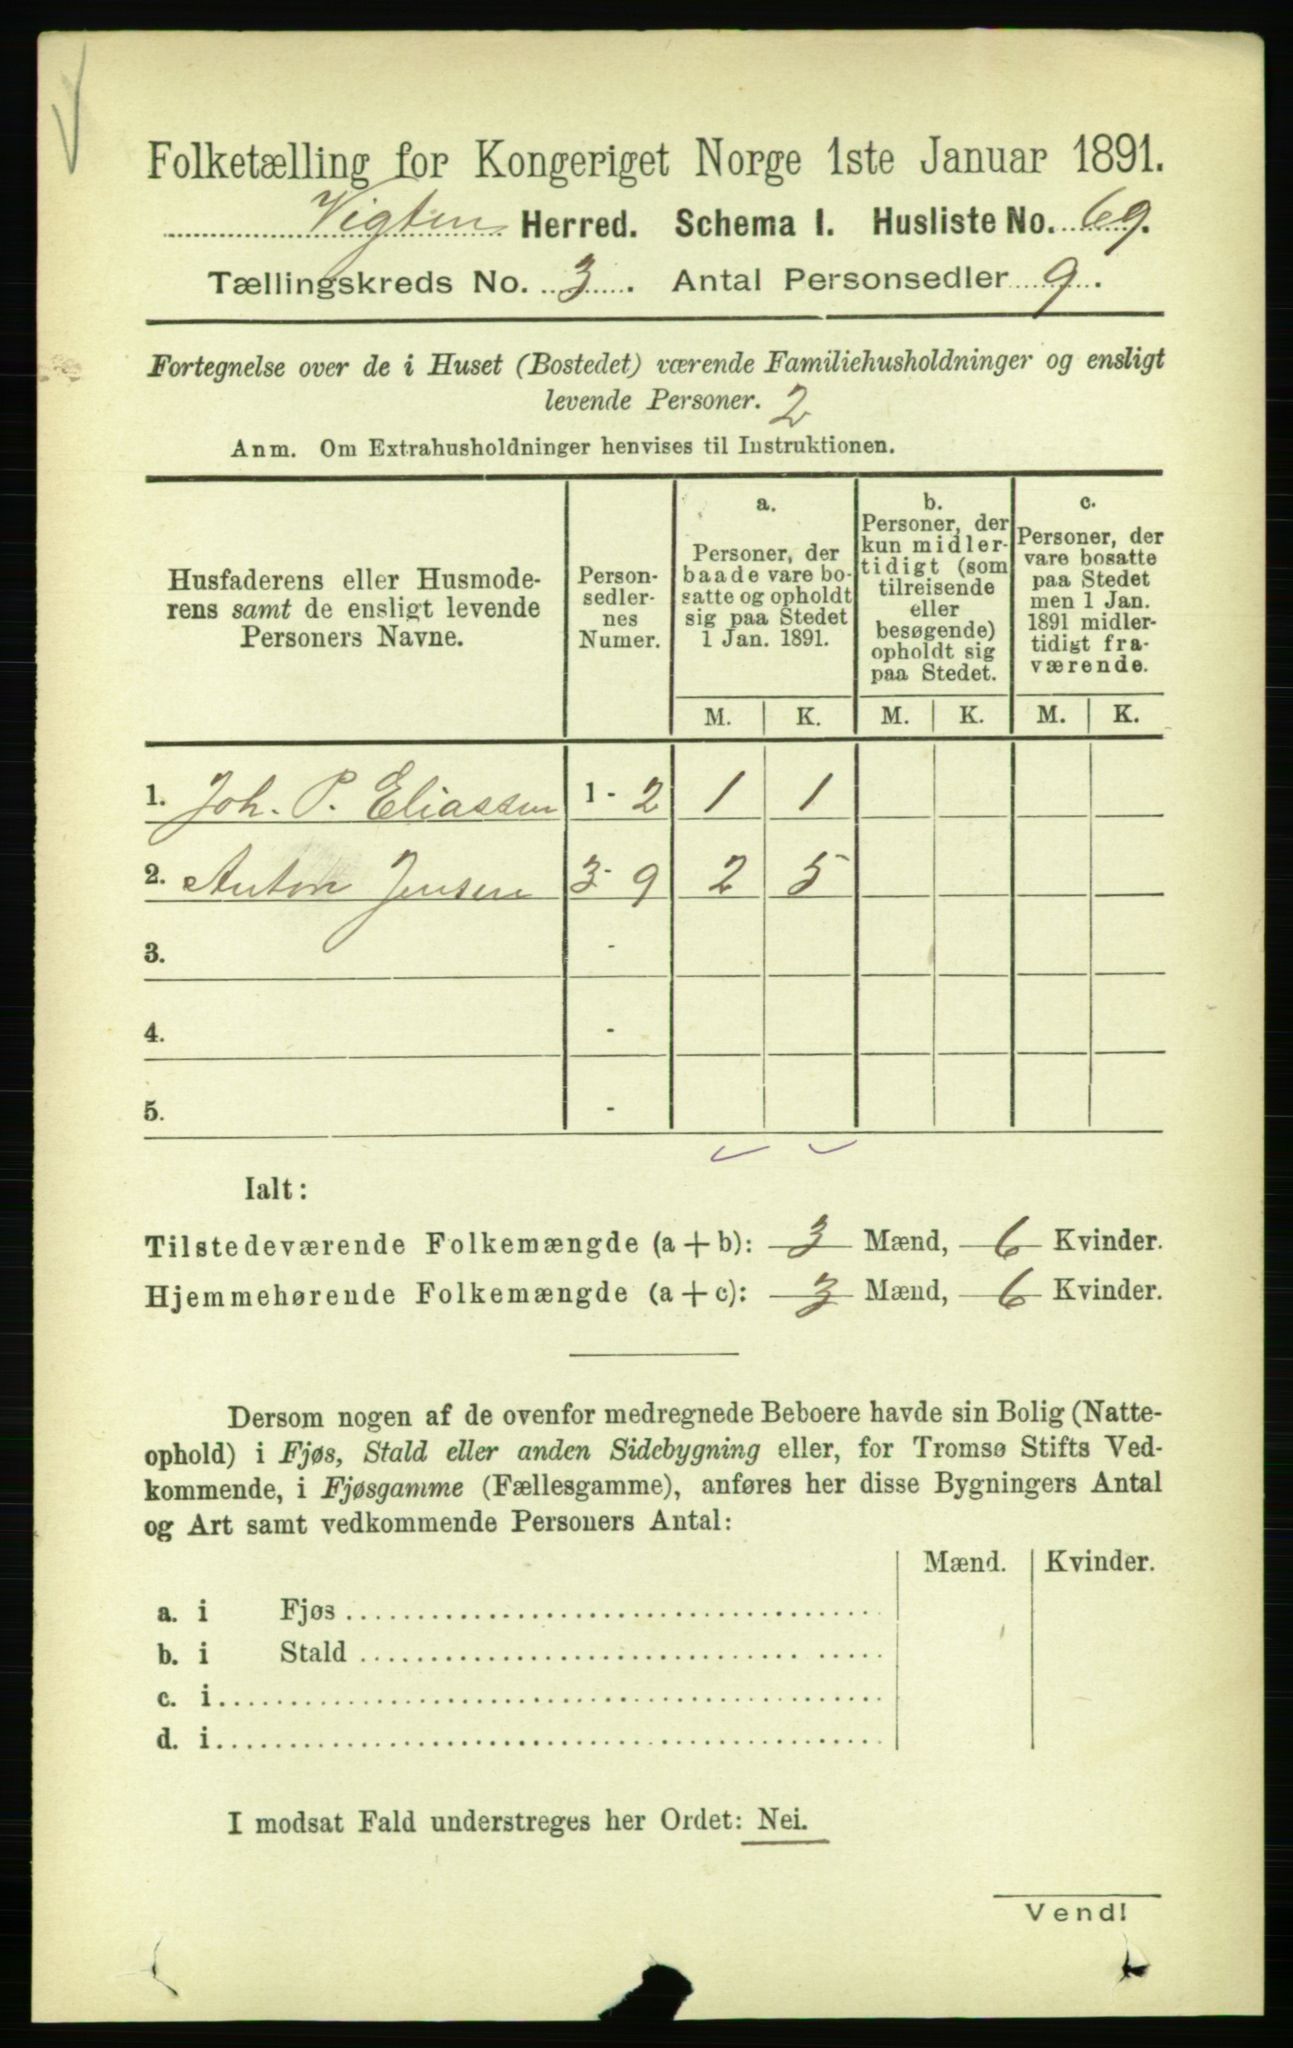 Folketælling for Kongeriget Norge 1ste Januar 1891.
Vigten Herred. Schema I. Husliste No. 69.
Tællingskreds No. 3. Antal Personsedler 9.
Fortegnelse over de i Huset (Bostedet) værende Familiehusholdninger og ensligt
levende Personer. 2
Anm. Om Extrahusholdninger henvises til Instruktionen.
Husfaderens eller Husmode-
rens samt de ensligt levende
Personers Navne.
Person-
sedler-
nes
Numer.
a.
Personer, der
baade vare bo-
satte og opholdt
sig paa Stedet
1 Jan. 1891.
b.
Personer, der
kun midler-
tidigt (som
tilreisende
eller
besøgende)
opholdt sig
paa Stedet.
c.
Personer, der
vare bosatte
paa Stedet
men 1 Jan.
1891 midler-
tidigt fra-
værende.
M. K. M. K. M. K.
1. Joh. P. Eliassen 1 - 2 1 1
2. Anton Jensen 3 - 9 2 5
3. -
4. -
5. -
Ialt:
Tilstedeværende Folkemængde (a + b): 3 Mænd, 6 Kvinder.
Hjemmehørende Folkemængde (a + c): 3 Mænd, 6 Kvinder.
Dersom nogen af de ovenfor medregnede Beboere havde sin Bolig (Natte-
ophold) i Fjøs, Stald eller anden Sidebygning eller, for Tromsø Stifts Ved-
kommende, i Fjøsgamme (Fællesgamme), anføres her disse Bygningers Antal
og Art samt vedkommende Personers Antal:
Mænd. Kvinder.
a. i Fjøs
b. i Stald
c. i
d. i
I modsat Fald understreges her Ordet: Nei.
Vend!